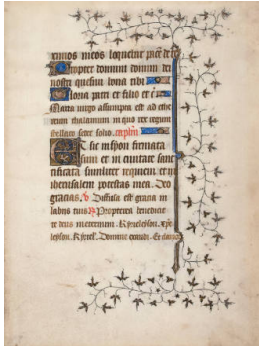 ximos meos loquebar pacē de te
Propter domum domini dei
nostri quesiui bona tibi
Gloria patri et filio et s̄
Maria uirgo assumpta est ad ethe
reum thalamum in quo rex regum
stellato sedet solio. capłm
Et sic in syon firmata
sum et in ciuitate sanc
tificata similiter requieui et in
iherusalem potestas mea. Deo
gracias. ℣ Diffusa est gracia in
labiis tuis ℟ Propterea benedixit
te deus in eternum. Kyrieleyson. xp̄e
leyson. Kyriel. Domine exaudi. Et clamor